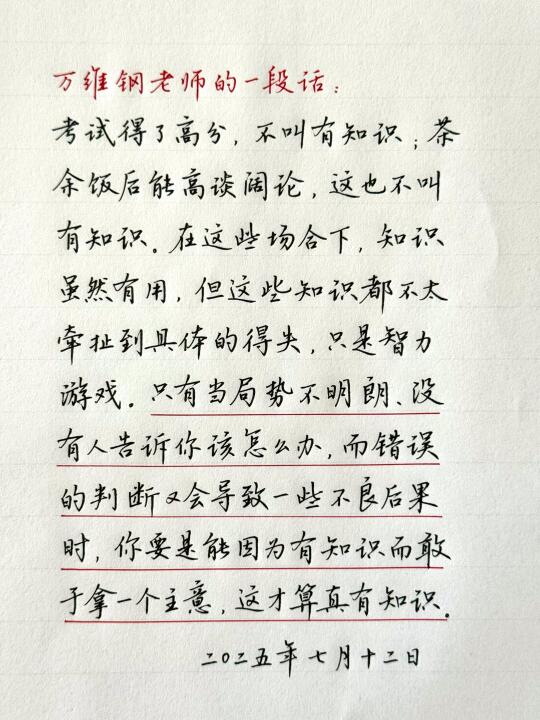 万维钢老师的一段话：
考试得了高分，不叫有知识；茶
余饭后能高谈阔论，这也不叫
有知识。在这些场合下，知识
虽然有用，但这些知识都不太
牵扯到具体的得失，只是智力
游戏。只有当局势不明朗、没
有人告诉你该怎么办，而错误
的判断又会导致一些不良后果
时，你要是能因为有知识而敢
于拿一个主意，这才算真有知识。
二〇二五年七月十二日